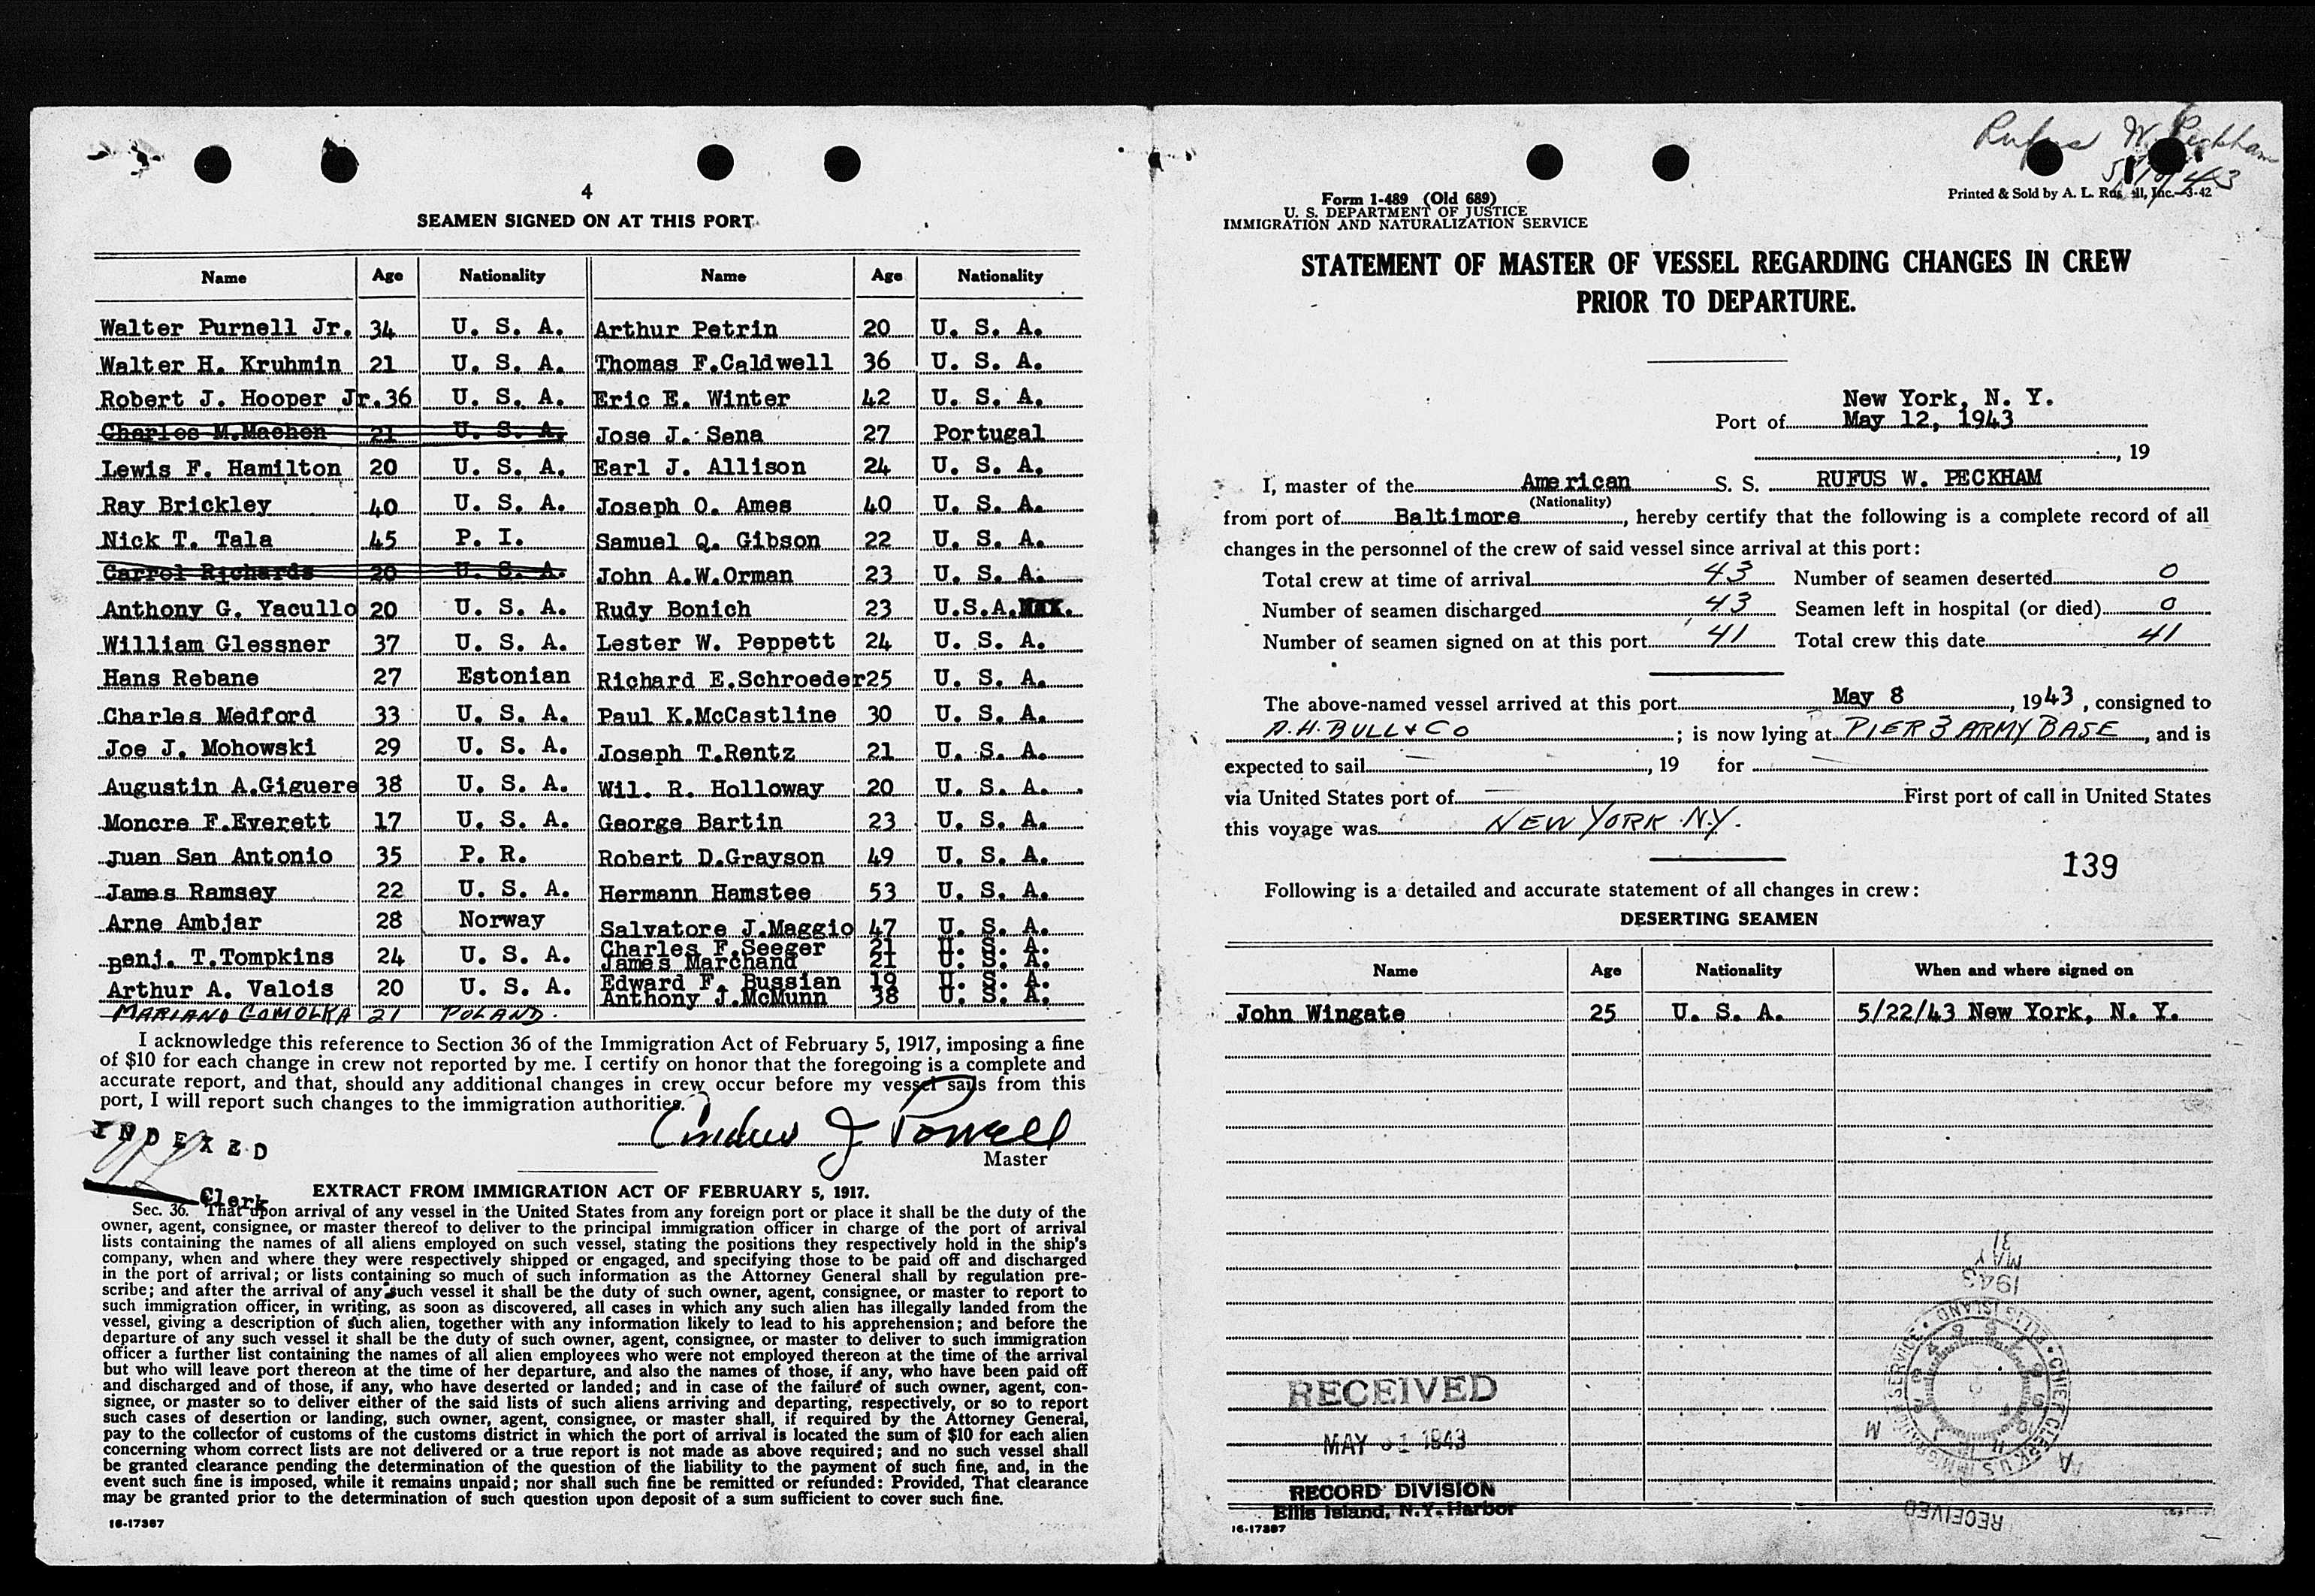 4
SEAMEN SIGNED ON AT THIS PORT
Name Age Nationality Name Age Nationality
Walter Purnell Jr. 34 U. S. A. Arthur Petrin 20 U. S. A.
Walter H. Kruhmin 21 U. S. A. Thomas F.Caldwell 36 U. S. A.
Robert J. Hooper Jr. 36 U. S. A. Eric E. Winter 42 U. S. A.
Charles M.Machen 21 U. S. A. Jose J. Sena 27 Portugal
Lewis F. Hamilton 20 U. S. A. Earl J. Allison 24 U. S. A.
Ray Brickley 40 U. S. A. Joseph O. Ames 40 U. S. A.
Nick T. Tala 45 P. I. Samuel Q. Gibson 22 U. S. A.
Carrol Richards 20 U. S. A. John A.W.Orman 23 U. S. A.
Anthony G. Yacullo 20 U. S. A. Rudy Bonich 23 U.S.A.
William Glessner 37 U. S. A. Lester W. Peppett 24 U. S. A.
Hans Rebane 27 Estonian Richard E.Schroeder 25 U. S. A.
Charles Medford 33 U. S. A. Paul K.McCastline 30 U. S. A.
Joe J. Mohowski 29 U. S. A. Joseph T.Rentz 21 U. S. A.
Augustin A.Giguere 38 U. S. A. Wil. R. Holloway 20 U. S. A.
Moncre F.Everett 17 U. S. A. George Bartin 23 U. S. A.
Juan San Antonio 35 P. R. Robert D.Grayson 49 U. S. A.
James Ramsey 22 U. S. A. Hermann Hamstee 53 U. S. A.
Arne Ambjar 28 Norway Salvatore J.Maggio 47 U. S. A.
Charles F.Seeger 21 U. S. A.
Benj. T.Tompkins 24 U. S. A. James Marchand 21 U. S. A.
Edward F. Bussian 19 U. S. A.
Arthur A. Valois 20 U. S. A. Anthony J.McMunn 38 U. S. A.
MARIANO GOMOLKA 21 POLAND.
I acknowledge this reference to Section 36 of the Immigration Act of February 5, 1917, imposing a fine
of $10 for each change in crew not reported by me. I certify on honor that the foregoing is a complete and
accurate report, and that, should any additional changes in crew occur before my vessel sails from this
port, I will report such changes to the immigration authorities.
INDEXED
J Powell
Master
Clerk
EXTRACT FROM IMMIGRATION ACT OF FEBRUARY 5, 1917.
Sec. 36. That upon arrival of any vessel in the United States from any foreign port or place it shall be the duty of the
owner, agent, consignee, or master thereof to deliver to the principal immigration officer in charge of the port of arrival
lists containing the names of all aliens employed on such vessel, stating the positions they respectively hold in the ship's
company, when and where they were respectively shipped or engaged, and specifying those to be paid off and discharged
in the port of arrival; or lists containing so much of such information as the Attorney General shall by regulation pre-
scribe; and after the arrival of any such vessel it shall be the duty of such owner, agent, consignee, or master to report to
such immigration officer, in writing, as soon as discovered, all cases in which any such alien has illegally landed from the
vessel, giving a description of such alien, together with any information likely to lead to his apprehension; and before the
departure of any such vessel it shall be the duty of such owner, agent, consignee, or master to deliver to such immigration
officer a further list containing the names of all alien employees who were not employed thereon at the time of the arrival
but who will leave port thereon at the time of her departure, and also the names of those, if any, who have been paid off
and discharged and of those, if any, who have deserted or landed; and in case of the failure of such owner, agent, con-
signee, or master so to deliver either of the said lists of such aliens arriving and departing, respectively, or so to report
such cases of desertion or landing, such owner, agent, consignee, or master shall, if required by the Attorney General,
pay to the collector of customs of the customs district in which the port of arrival is located the sum of $10 for each alien
concerning whom correct lists are not delivered or a true report is not made as above required; and no such vessel shall
be granted clearance pending the determination of the question of the liability to the payment of such fine, and, in the
event such fine is imposed, while it remains unpaid; nor shall such fine be remitted or refunded: Provided, That clearance
may be granted prior to the determination of such question upon deposit of a sum sufficient to cover such fine.
16-17367
Rufus W. Peckham
Form 1-489 (Old 689)
U. S. DEPARTMENT OF JUSTICE
IMMIGRATION AND NATURALIZATION SERVICE
Printed & Sold by A. L. Inc.—3-42
STATEMENT OF MASTER OF VESSEL REGARDING CHANGES IN CREW
PRIOR TO DEPARTURE.
New York, N. Y.
Port of May 12, 1943
, 19
I, master of the American S. S. RUFUS W. PECKHAM
(Nationality)
from port of Baltimore, hereby certify that the following is a complete record of all
changes in the personnel of the crew of said vessel since arrival at this port:
Total crew at time of arrival 43 Number of seamen deserted 0
Number of seamen discharged 43 Seamen left in hospital (or died) 0
Number of seamen signed on at this port 41 Total crew this date 41
The above-named vessel arrived at this port May 8, 1943, consigned to
A.H. BULL & CO; is now lying at PIER 3 ARMY BASE, and is
expected to sail —, 19 for —
via United States port of — First port of call in United States
this voyage was NEW YORK N.Y.
139
Following is a detailed and accurate statement of all changes in crew:
DESERTING SEAMEN
Name Age Nationality When and where signed on
John Wingate 25 U. S. A. 5/22/43 New York, N. Y.
1943
MAY
31
RECEIVED
MAY 31 1943
RECORD DIVISION
Ellis Island, N.Y. Harbor
16-17367
RECEIVED